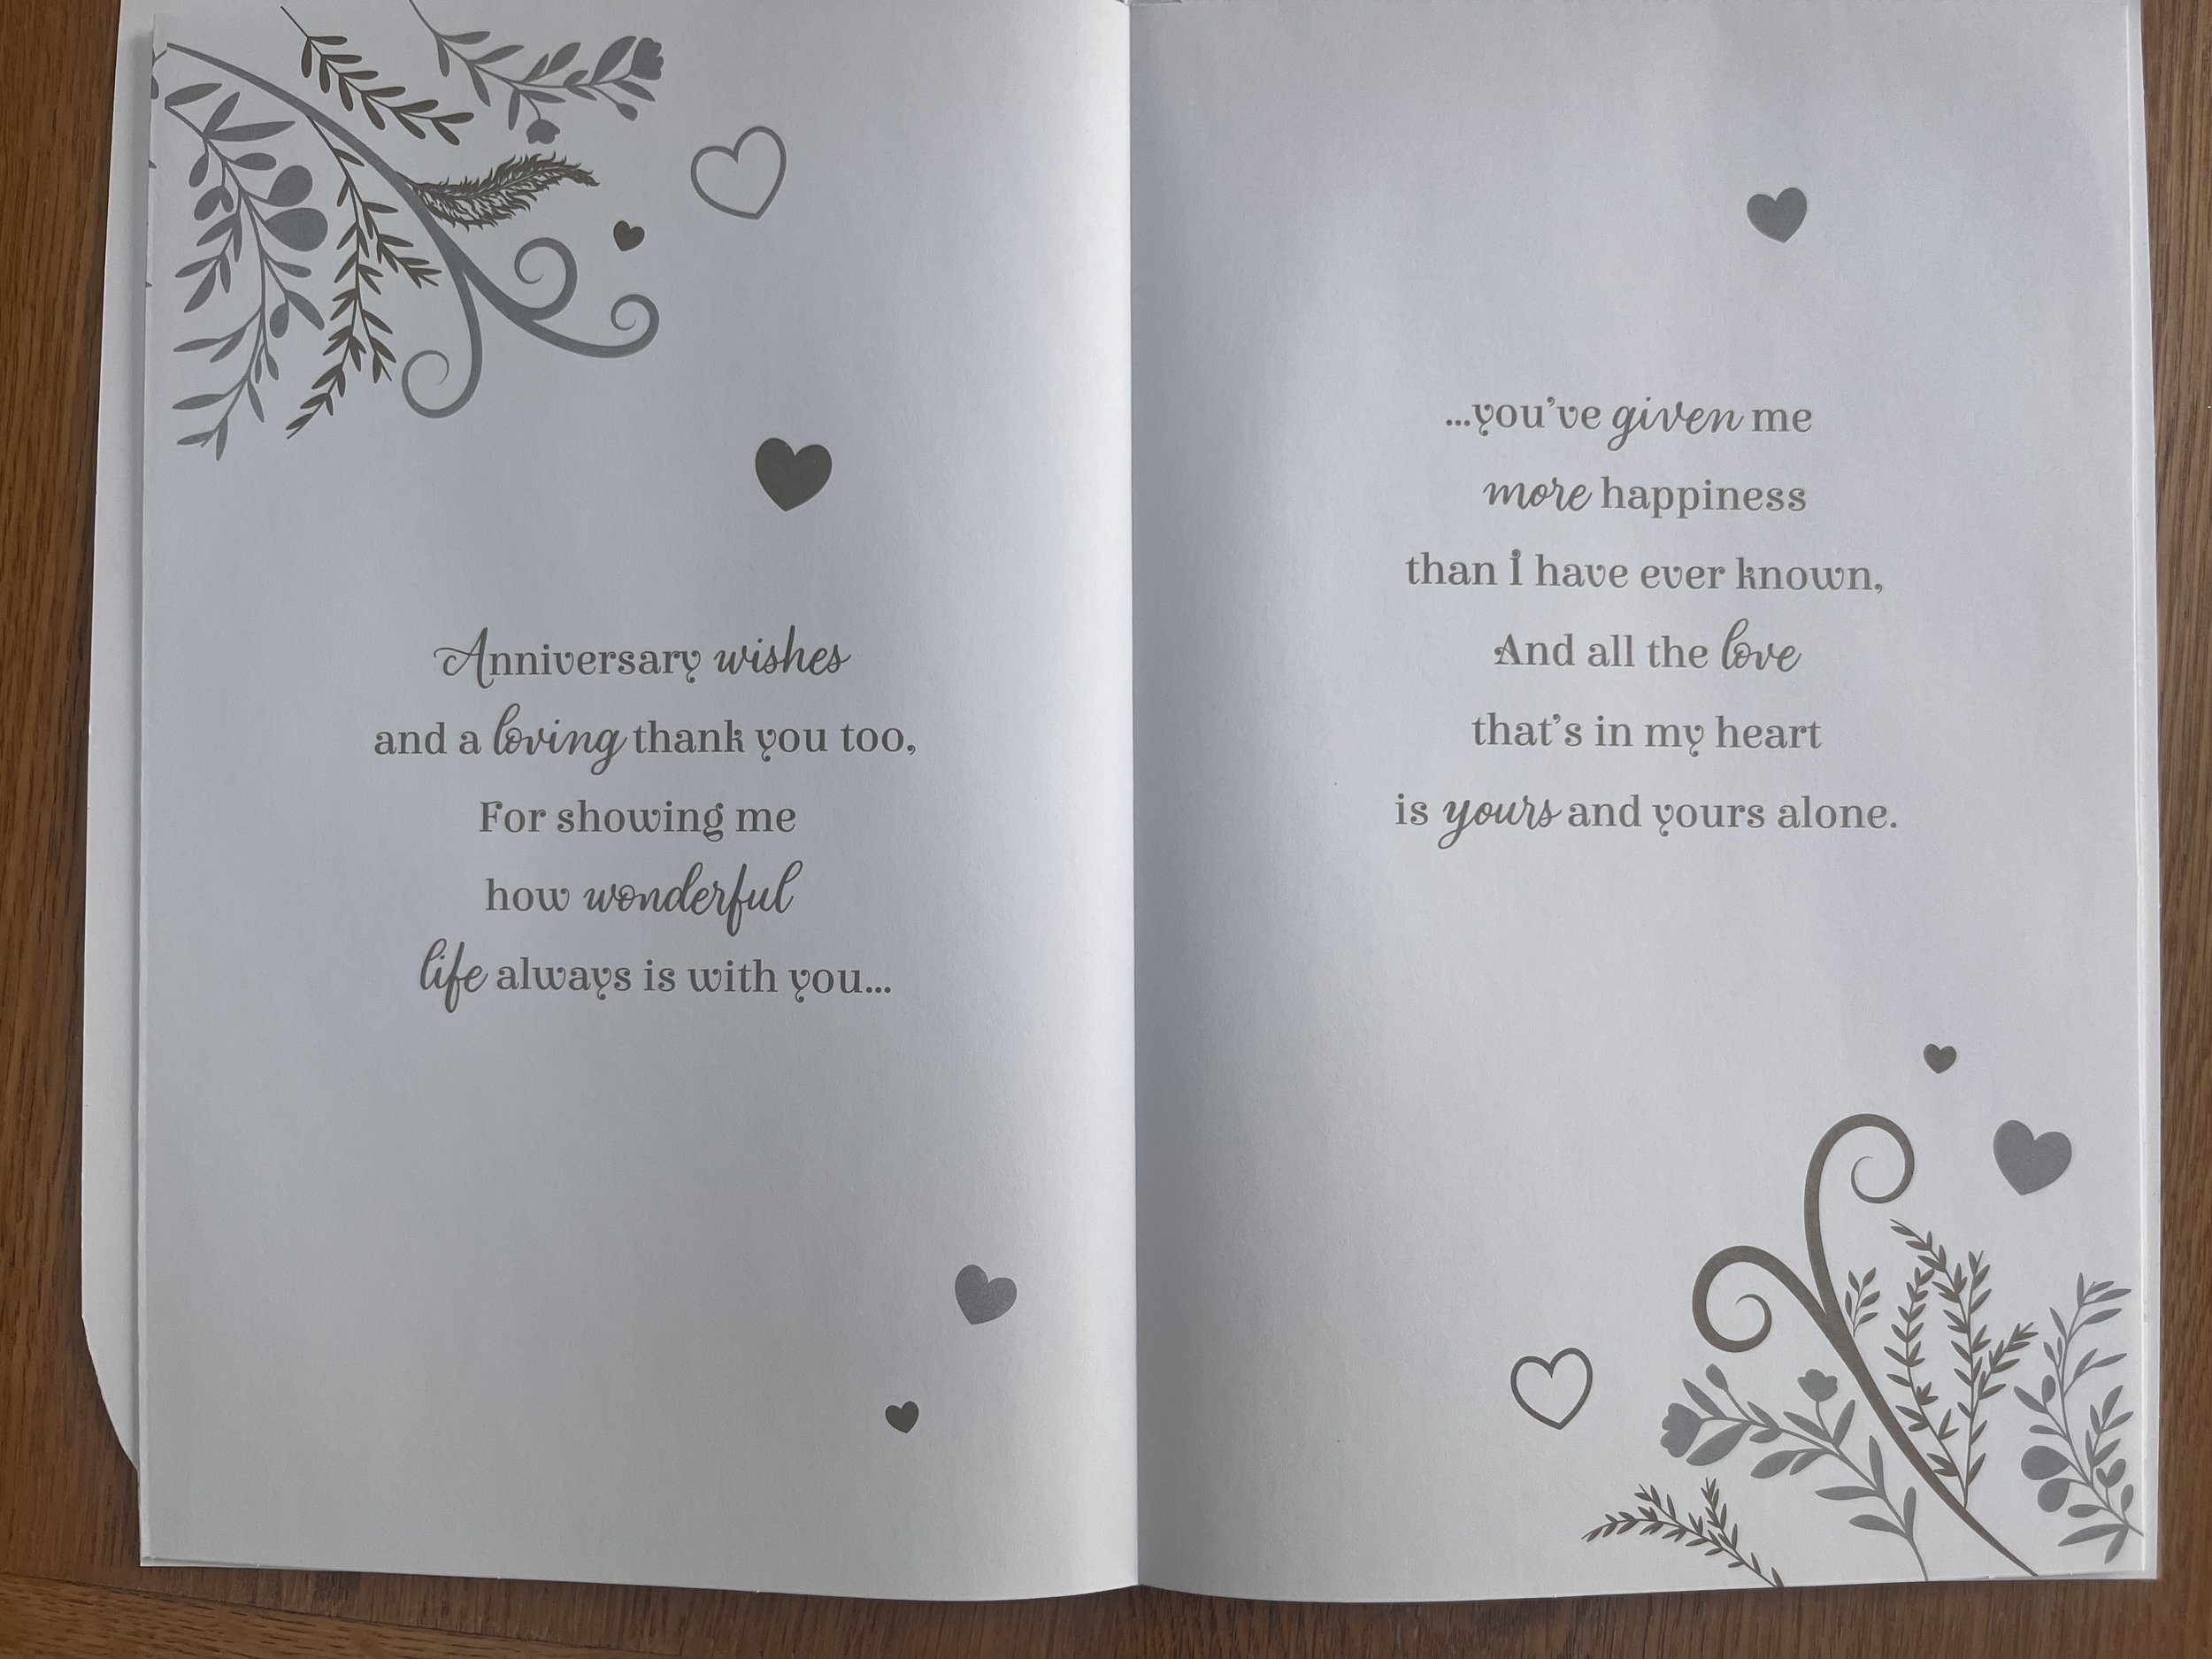 Anniversary wishes
and a loving thank you too,
For showing me
how wonderful
life always is with you...
...you've given me
more happiness
than I have ever known,
And all the love
that's in my heart
is yours and yours alone.